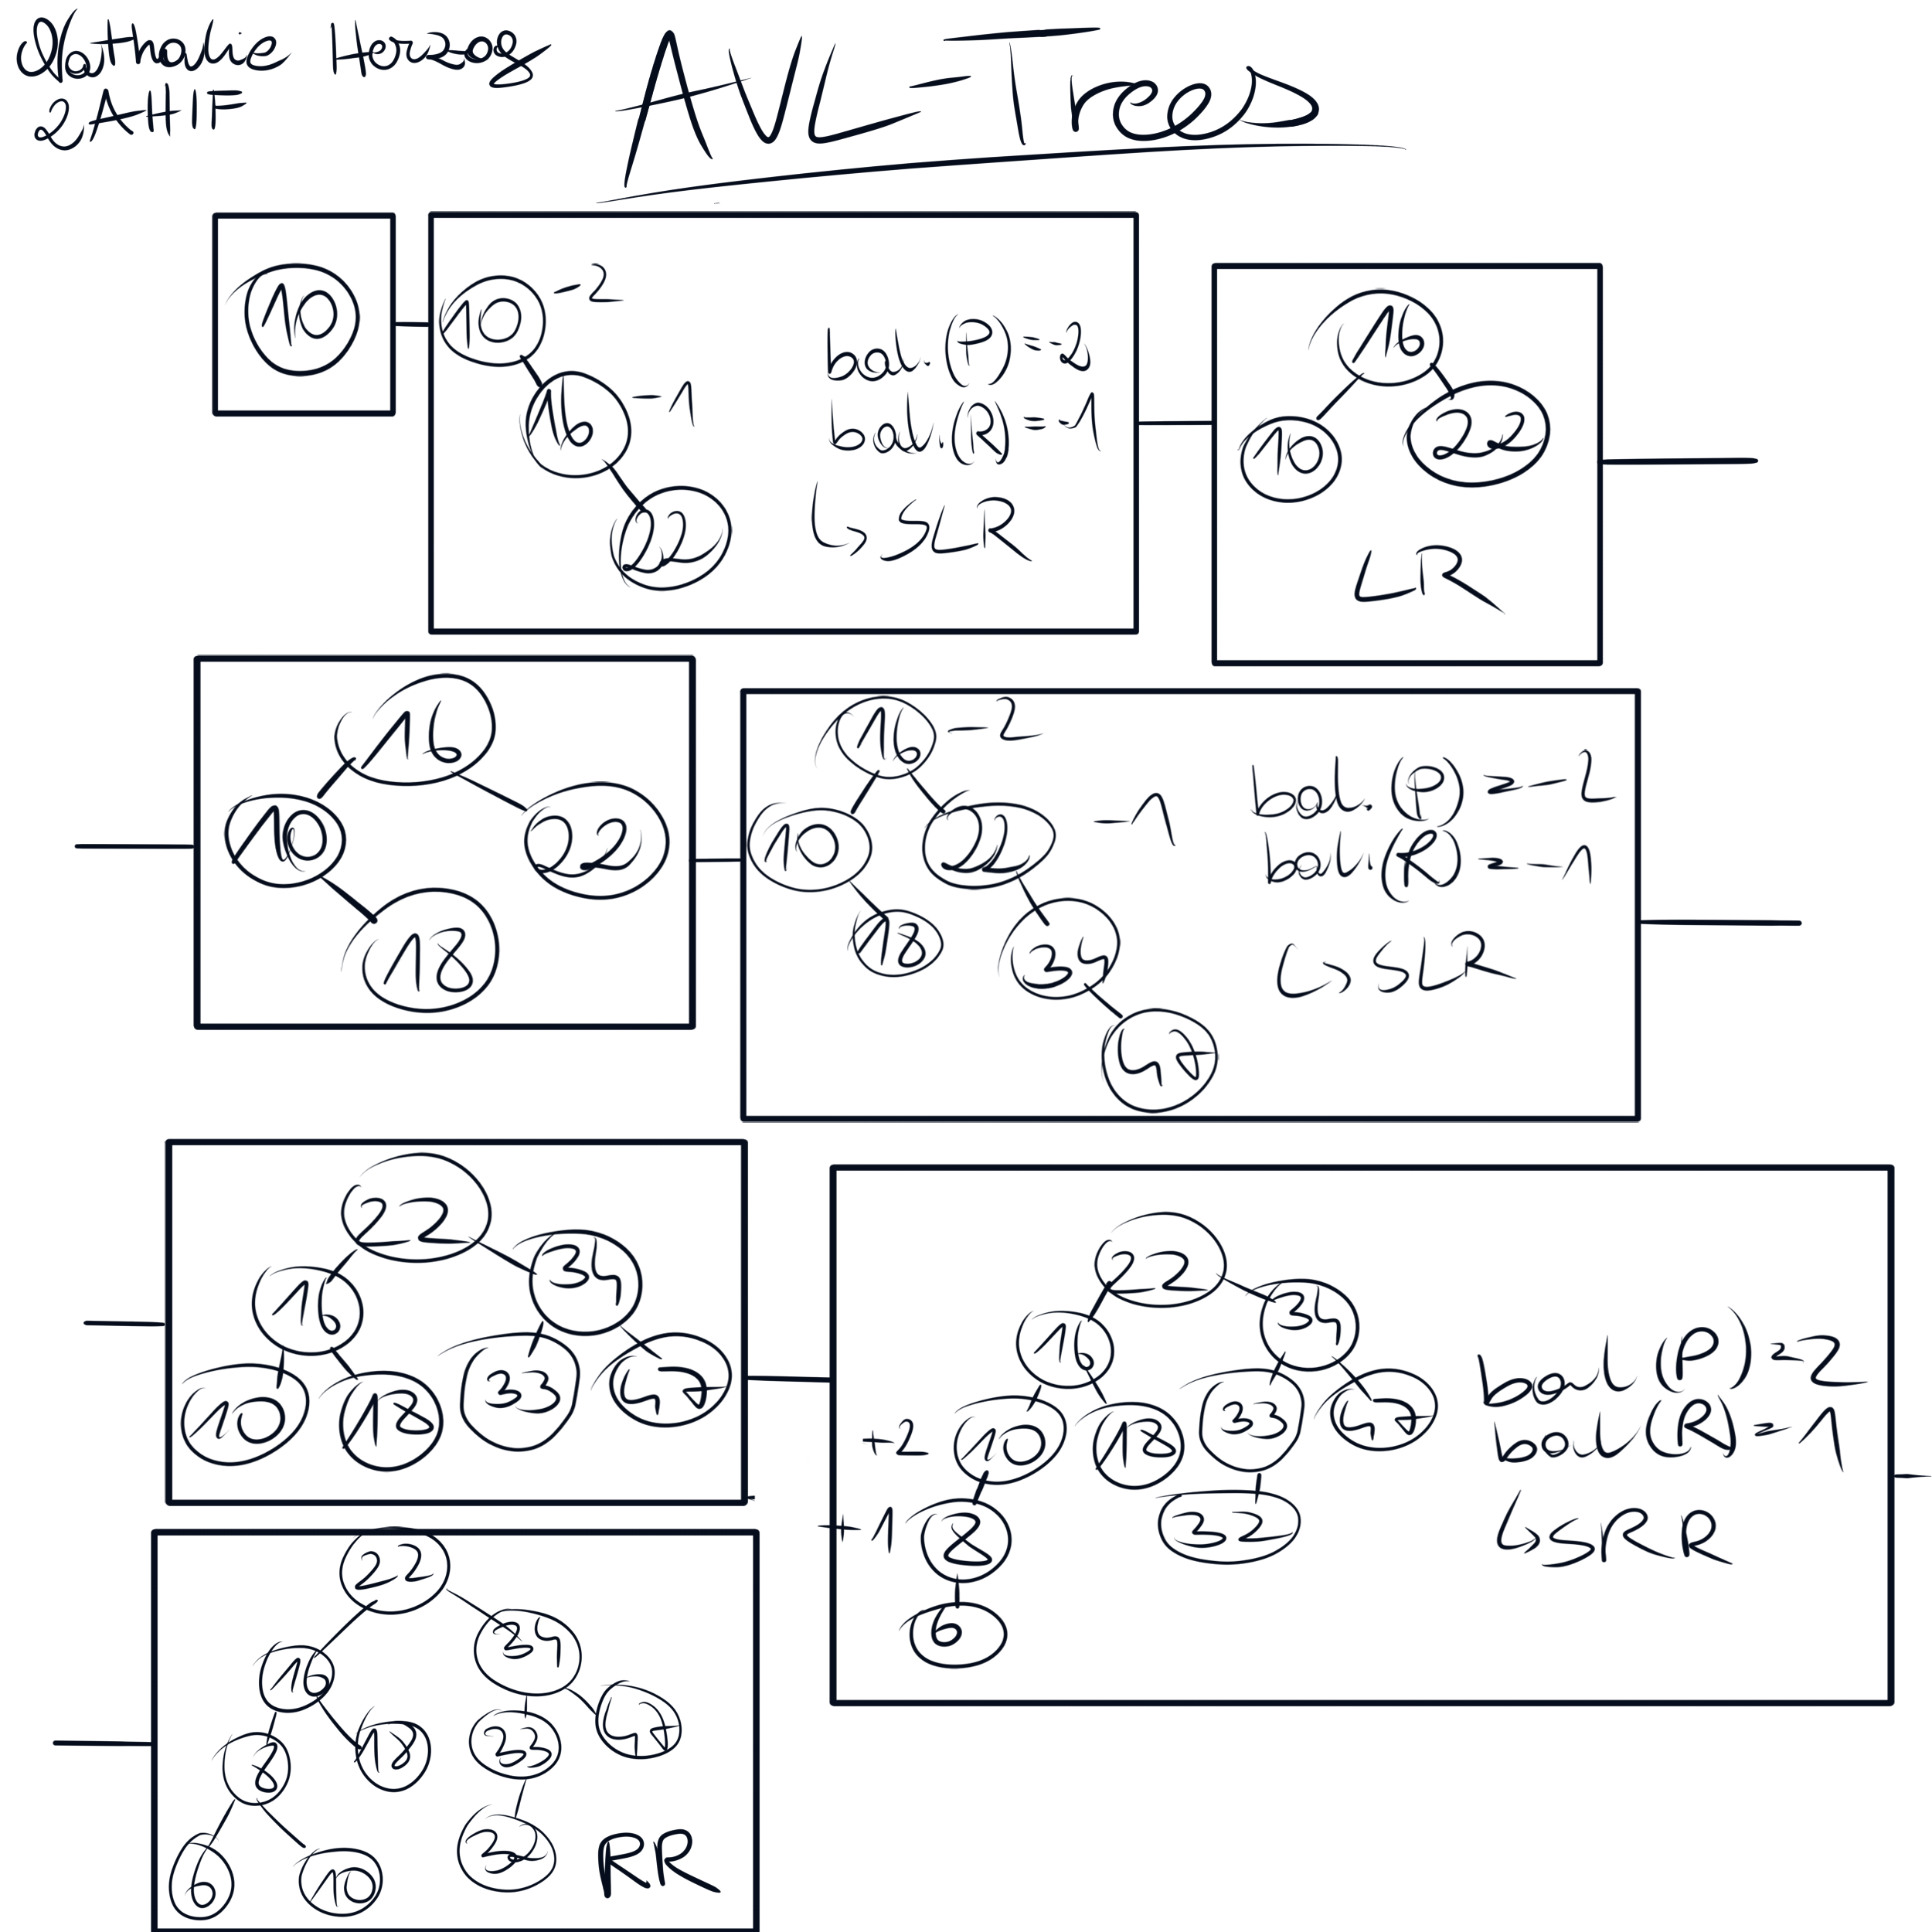 Nathalie Herzog
2AHIF
AVL-Trees
10
10 -2
16 -1
22
bal.(P)=-2
bal.(R)=-1
↳ SLR
16
10 22
LR
16
10 22
18
16 -2
10 22 -1
18 34
47
bal.(P)=-2
bal.(R)=-1
↳ SLR
22
16 34
10 18 33 47
22
16 34
+2 10 18 33 47
+1 8 32
6
bal(P)=2
bal(R)=1
↳ SRR
22
16 34
8 18 33 47
6 10 32
RR